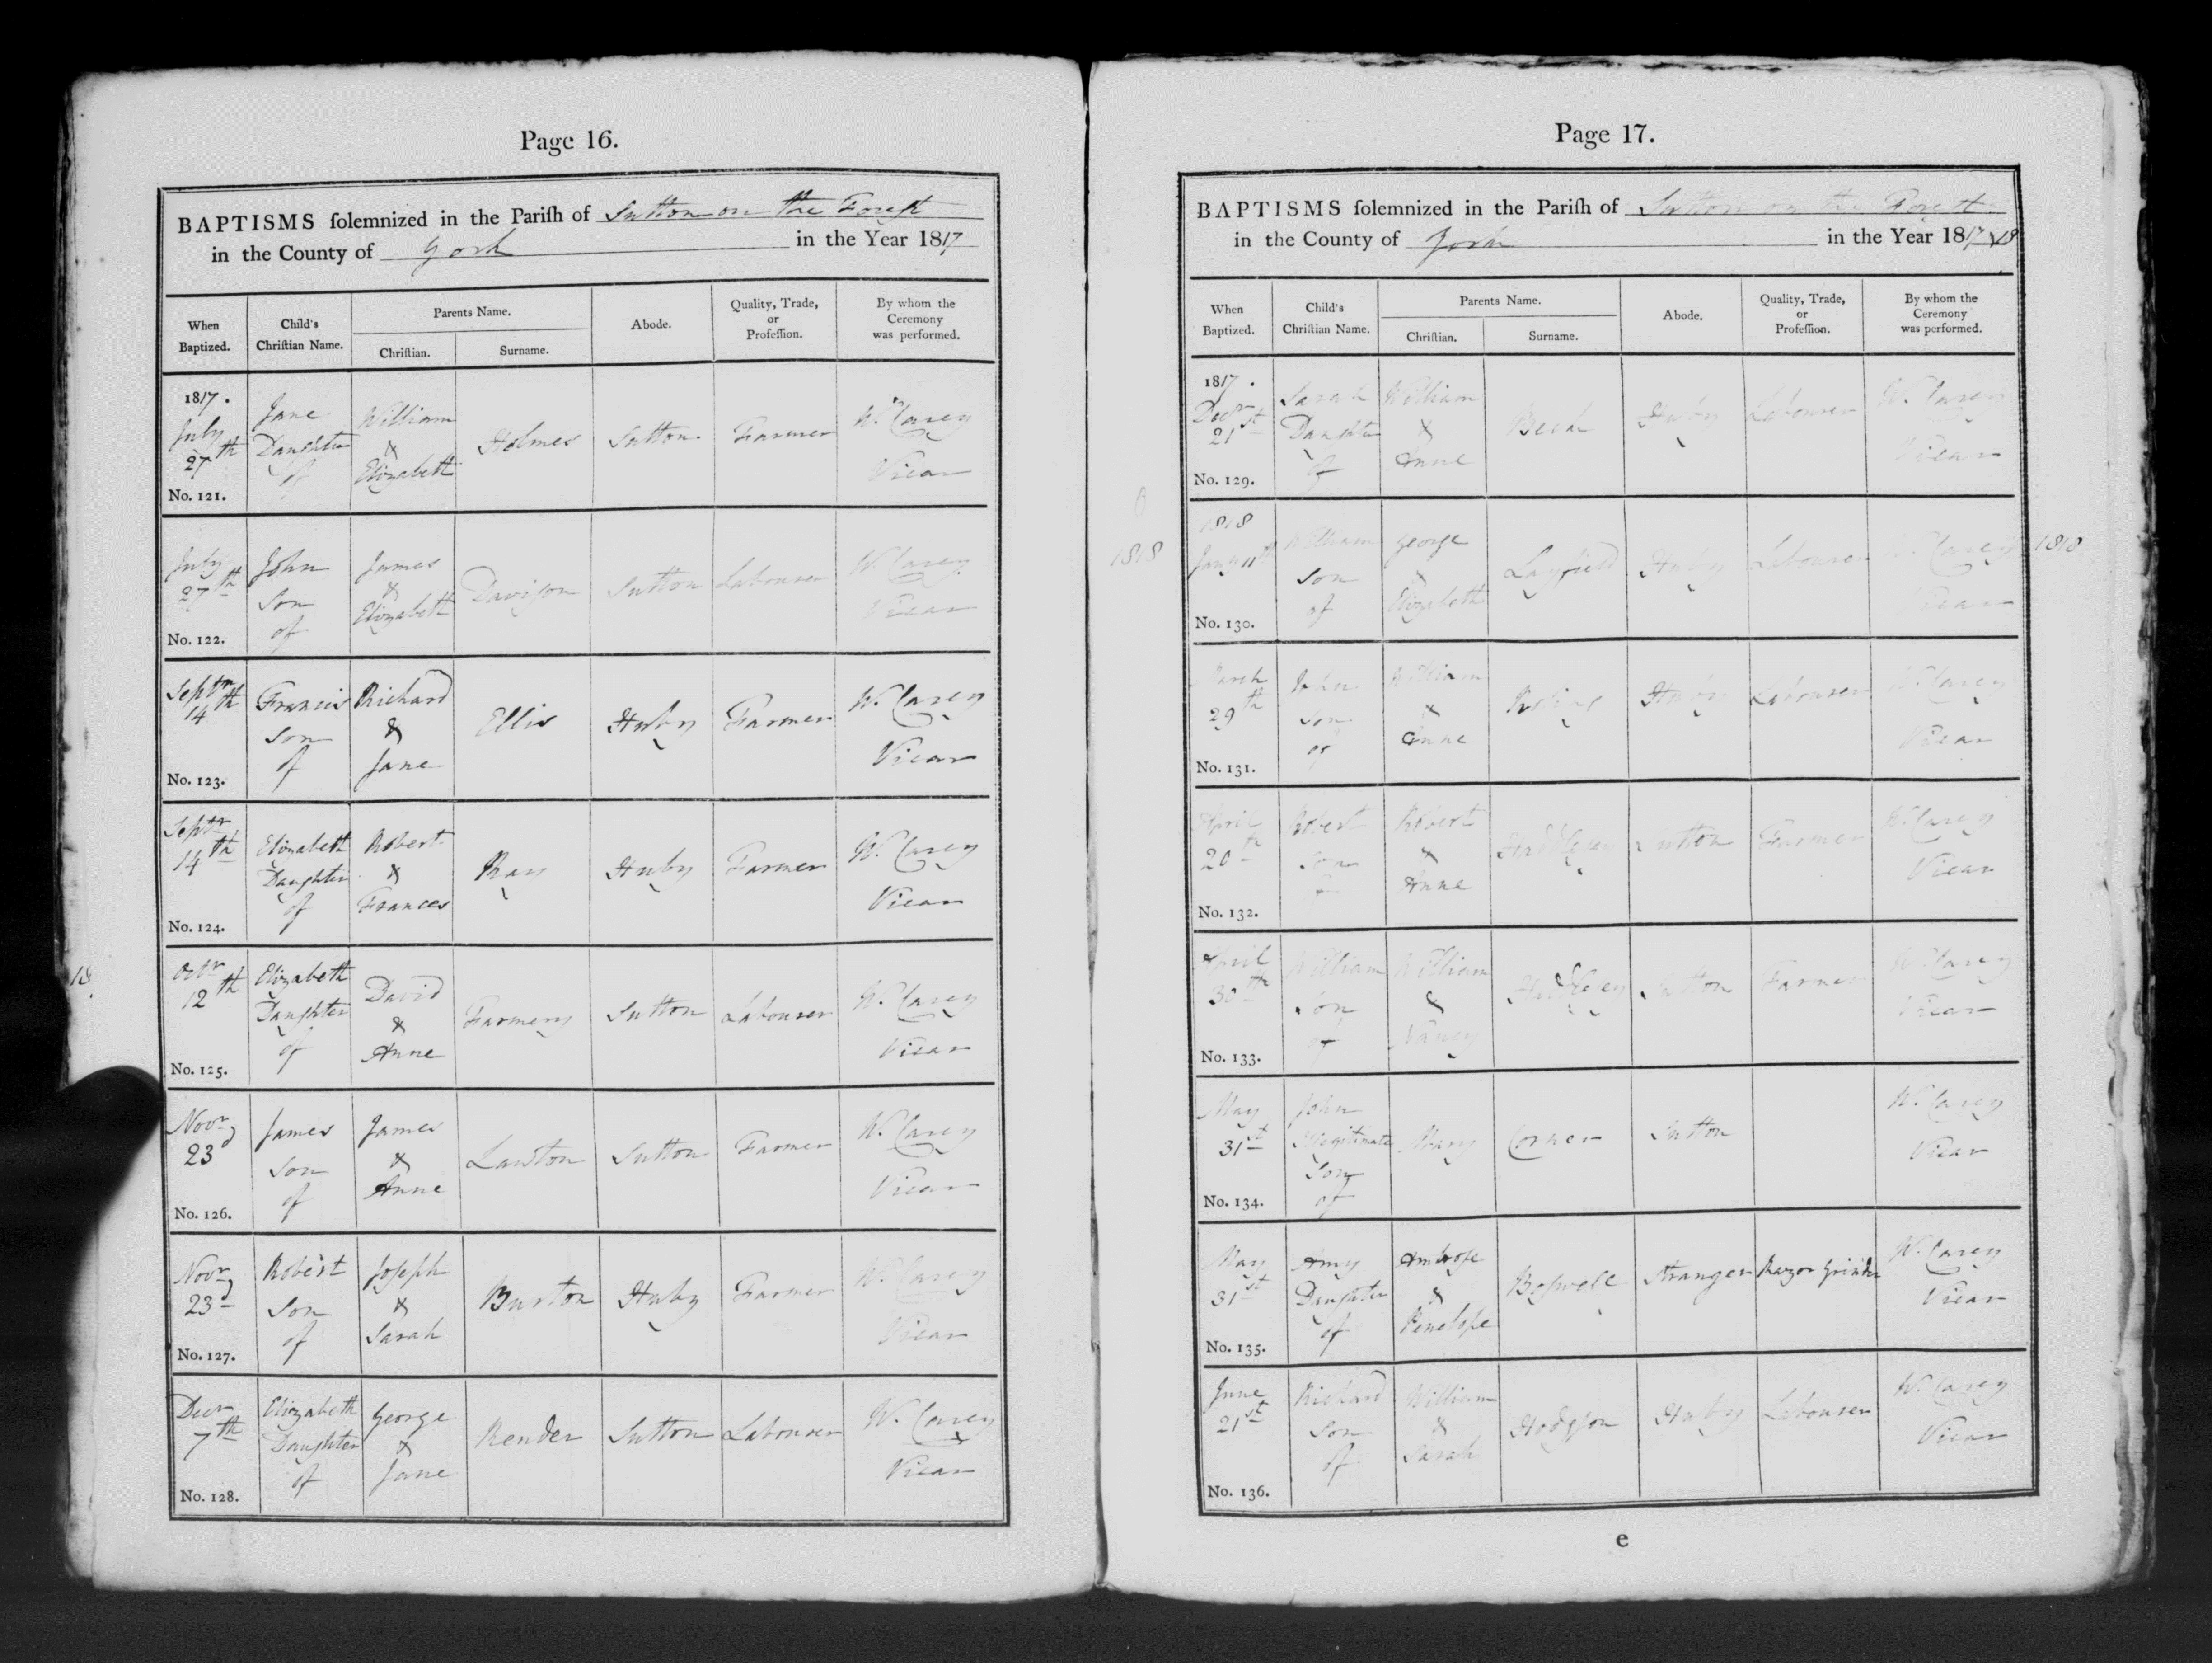 Page 16.
BAPTISMS ſolemnized in the Pariſh of Sutton on the Forest
in the County of York in the Year 1817
When Baptized. Child's Chriſtian Name. Parents Name. Chriſtian. Surname. Abode. Quality, Trade, or Profeſſion. By whom the Ceremony was performed.
1817. July 27th No. 121. Jane Daughter of William & Elizabeth Holmes Sutton Farmer W. Carey Vicar
July 27th No. 122. John Son of James & Elizabeth Davison Sutton Labourer W. Carey Vicar
Septr 14th No. 123. Francis Son of Richard & Jane Ellis Huby Farmer W. Carey Vicar
Septr 14th No. 124. Elizabeth Daughter of Robert & Frances Ray Huby Farmer W. Carey Vicar
Octr 12th No. 125. Elizabeth Daughter of David & Anne Farmery Sutton Labourer W. Carey Vicar
Novr 23d No. 126. James Son of James & Anne Lawton Sutton Farmer W. Carey Vicar
Novr 23d No. 127. Robert Son of Joseph & Sarah Burton Huby Farmer W. Carey Vicar
Decr 7th No. 128. Elizabeth Daughter of George & Jane Render Sutton Labourer W. Carey Vicar
Page 17.
BAPTISMS ſolemnized in the Pariſh of Sutton on the Forest
in the County of York in the Year 1817 & 18
When Baptized. Child's Chriſtian Name. Parents Name. Chriſtian. Surname. Abode. Quality, Trade, or Profeſſion. By whom the Ceremony was performed.
1817. Decr 21st No. 129. Sarah Daughter of William & Anne Beck Huby Labourer W. Carey Vicar
1818 1818 Jany 11th No. 130. William Son of George & Elizabeth Layfield Huby Labourer W. Carey Vicar 1818
March 29th No. 131. John Son of William & Anne Huby Labourer W. Carey Vicar
April 20th No. 132. Robert Son of Robert & Anne Haddlesey Sutton Farmer W. Carey Vicar
April 30th No. 133. William Son of William & Nancy Haddlesey Sutton Farmer W. Carey Vicar
May 31st No. 134. John Illegitimate Son of Mary Corner Sutton W. Carey Vicar
May 31st No. 135. Amy Daughter of Ambrose & Penelope Boswell Stranger Razor Grinder W. Carey Vicar
June 21st No. 136. Richard Son of William & Sarah Hodgson Huby Labourer W. Carey Vicar
e